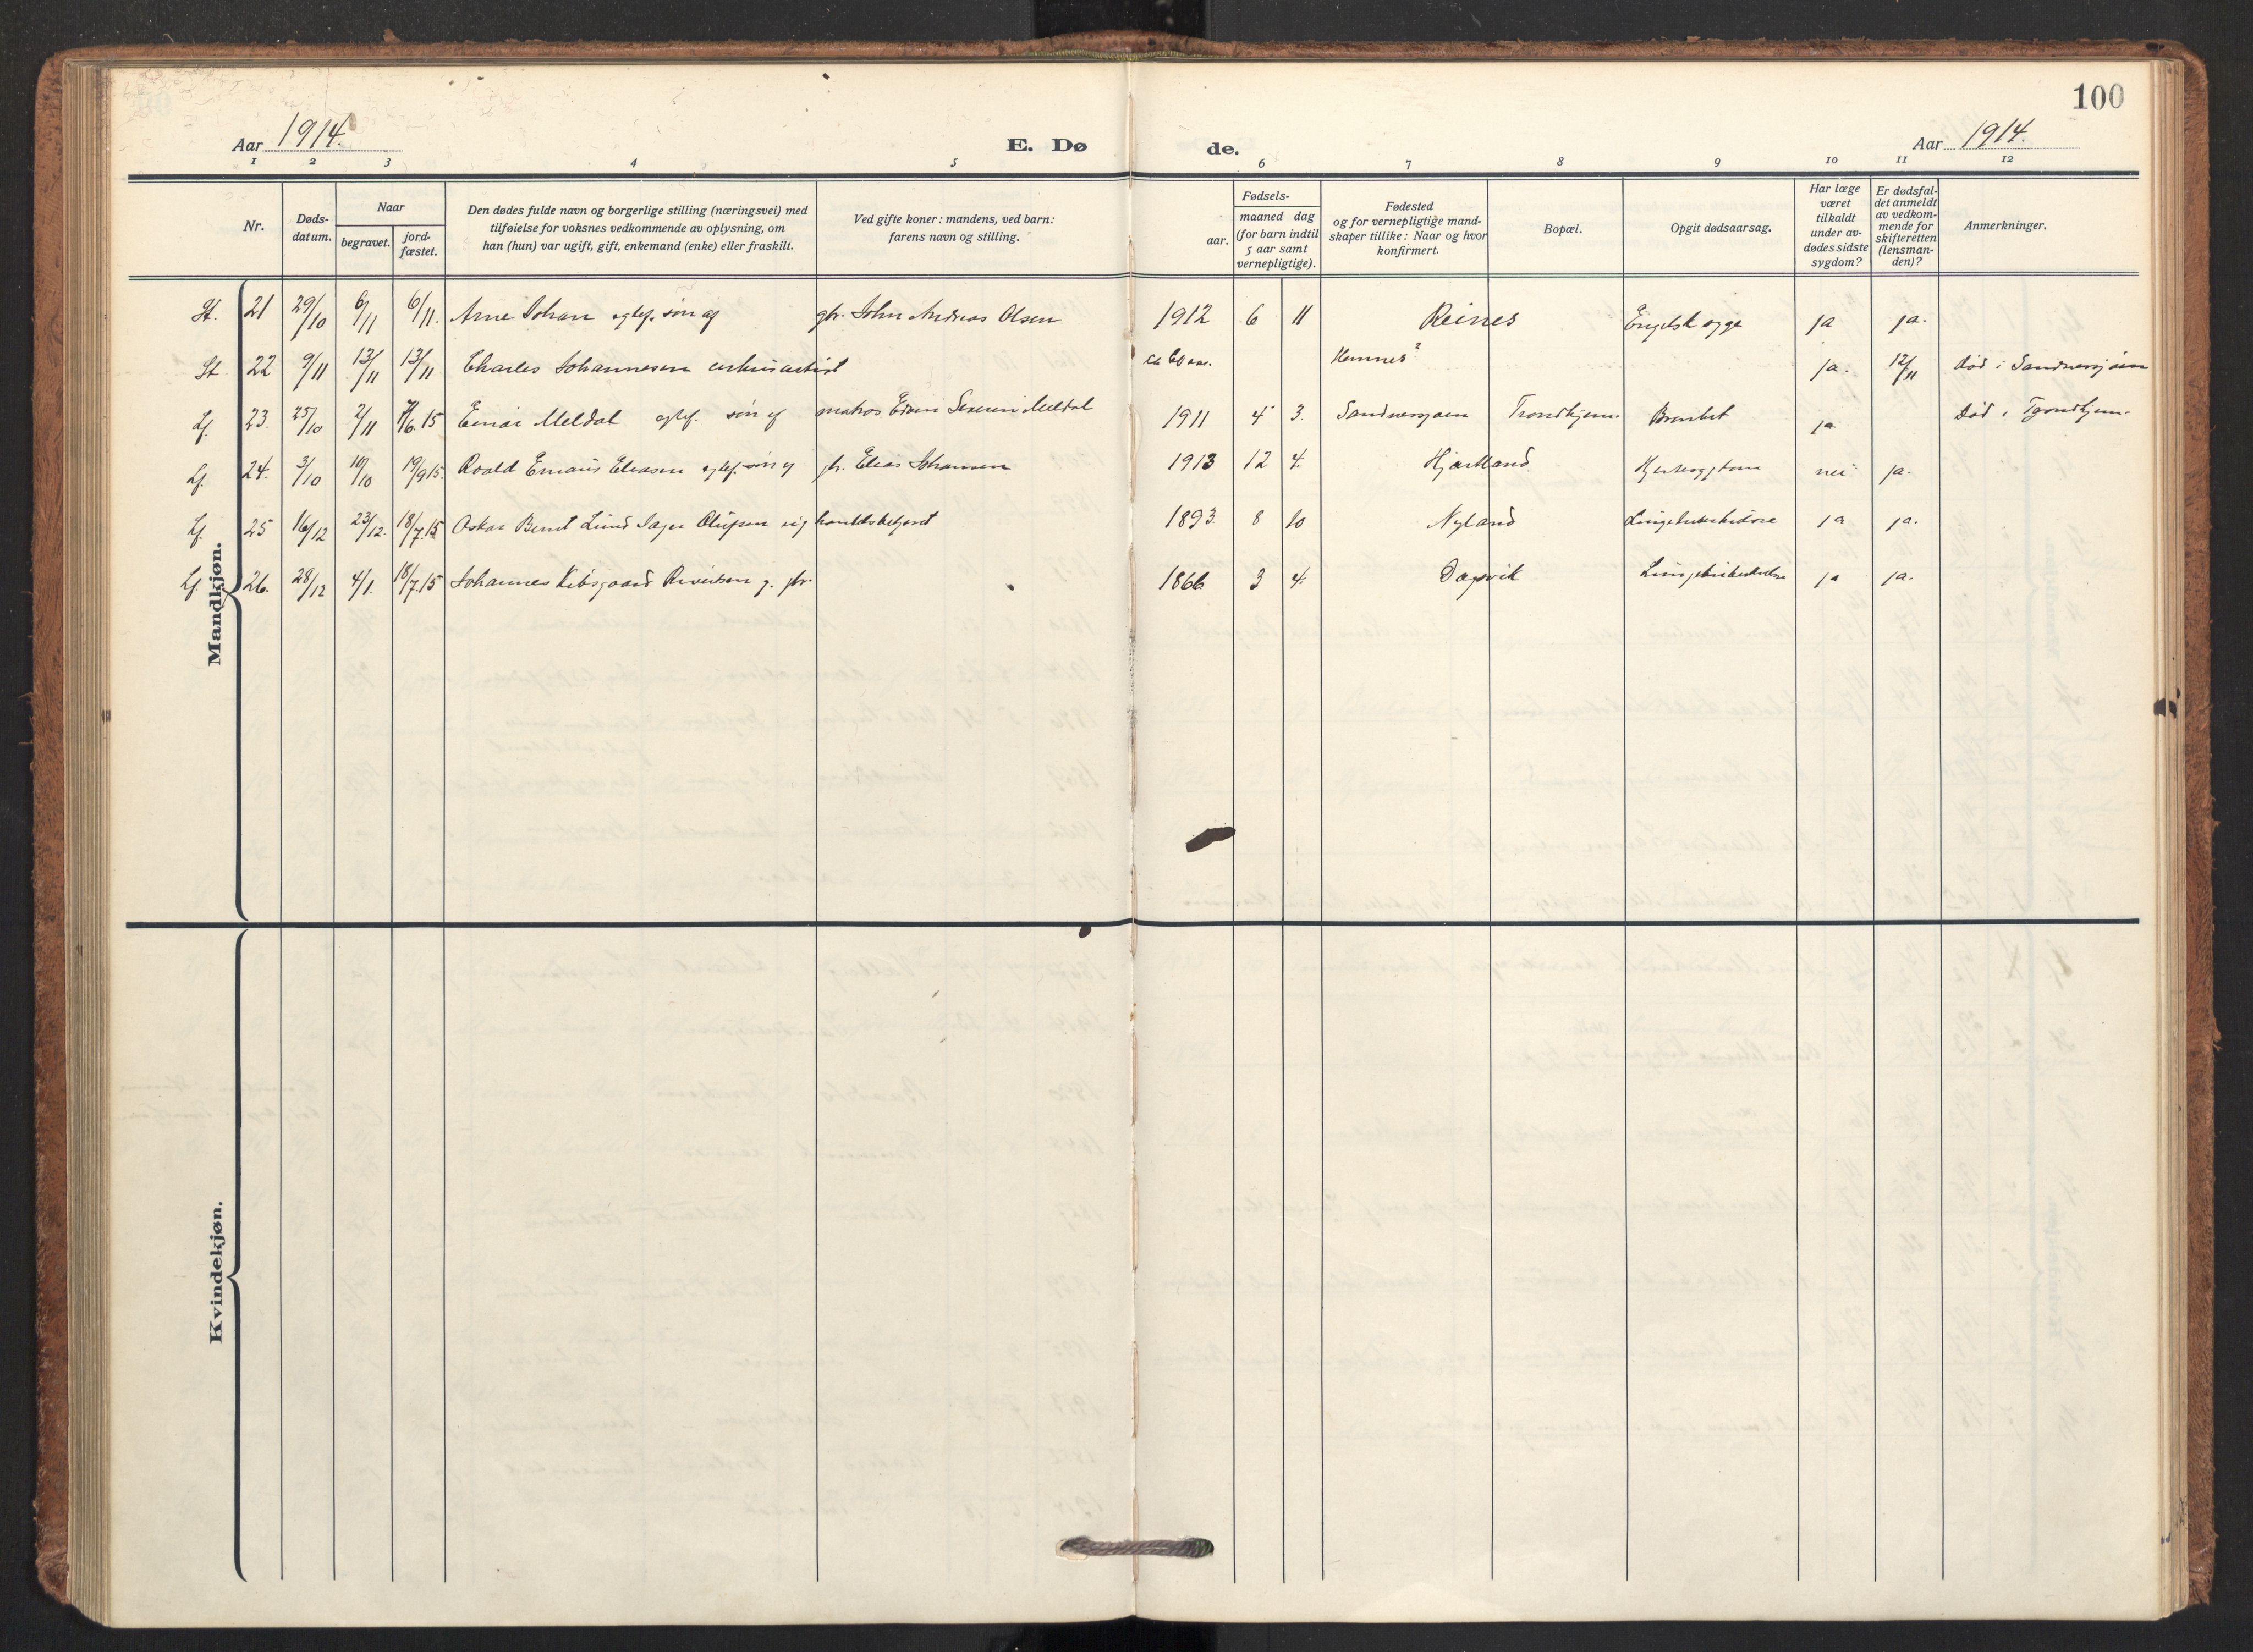 100
Aar 1914. E. Dø de. Aar 1914.
1 2 3 4 5 6 7 8 9 10 11 12
Nr.
Døds-
datum.
Naar
begravet.
jord-
fæstet.
Den dødes fulde navn og borgerlige stilling (næringsvei) med
tilføielse for voksnes vedkommende av oplysning, om
han (hun) var ugift, gift, enkemand (enke) eller fraskilt.
Ved gifte koner: mandens, ved barn:
farens navn og stilling.
Fødsels-
aar.
maaned dag
(for barn indtil
5 aar samt
vernepligtige).
Fødested
og for vernepligtige mand-
skaper tillike: Naar og hvor
konfirmert.
Bopæl.
Opgit dødsaarsag.
Har læge
været
tilkaldt
under av-
dødes sidste
sygdom?
Er dødsfal-
det anmeldt
av vedkom-
mende for
skifteretten
(lensman-
den)?
Anmerkninger.
Mandkjøn.
St. 21 29/10 6/11 6/11. Arne Johan egtef. søn af gbr. John Andreas Olsen 1912 6 11 Reines Engelsk syge ja ja.
St 22 9/11 13/11 13/11 Charles Johannesen cirkusartist ca 60 aar. Hemnes? ja. 12/11 død i Sandnessjøen
Lf. 23. 25/10 2/11 7/6.15 Einar Meldal egtef. søn af matros Edvin Severin Meldal 1911 4 3. Sandnessjøen Trondhjem. Brændt ja Død i Trondhjem.
Lf. 24. 3/10 10/10 19/9 15. Roald Emaus Eliasen egtef. søn af fbr. Elias Johansen 1913 12 4. Hjartland nei ja.
Lf. 25 16/12 23/12. 18/7.15 Oskar Bernt Lund Olufsen ug handelsbetjent 1893. 8 10 Nyland Lungetuberkulose ja ja.
Lf. 26. 28/12 4/1. 18/7.15 Johannes Kibsgaard g. fbr. 1866 3 4. Dagsvik Lungetuberkulose ja ja.
Kvindekjøn.